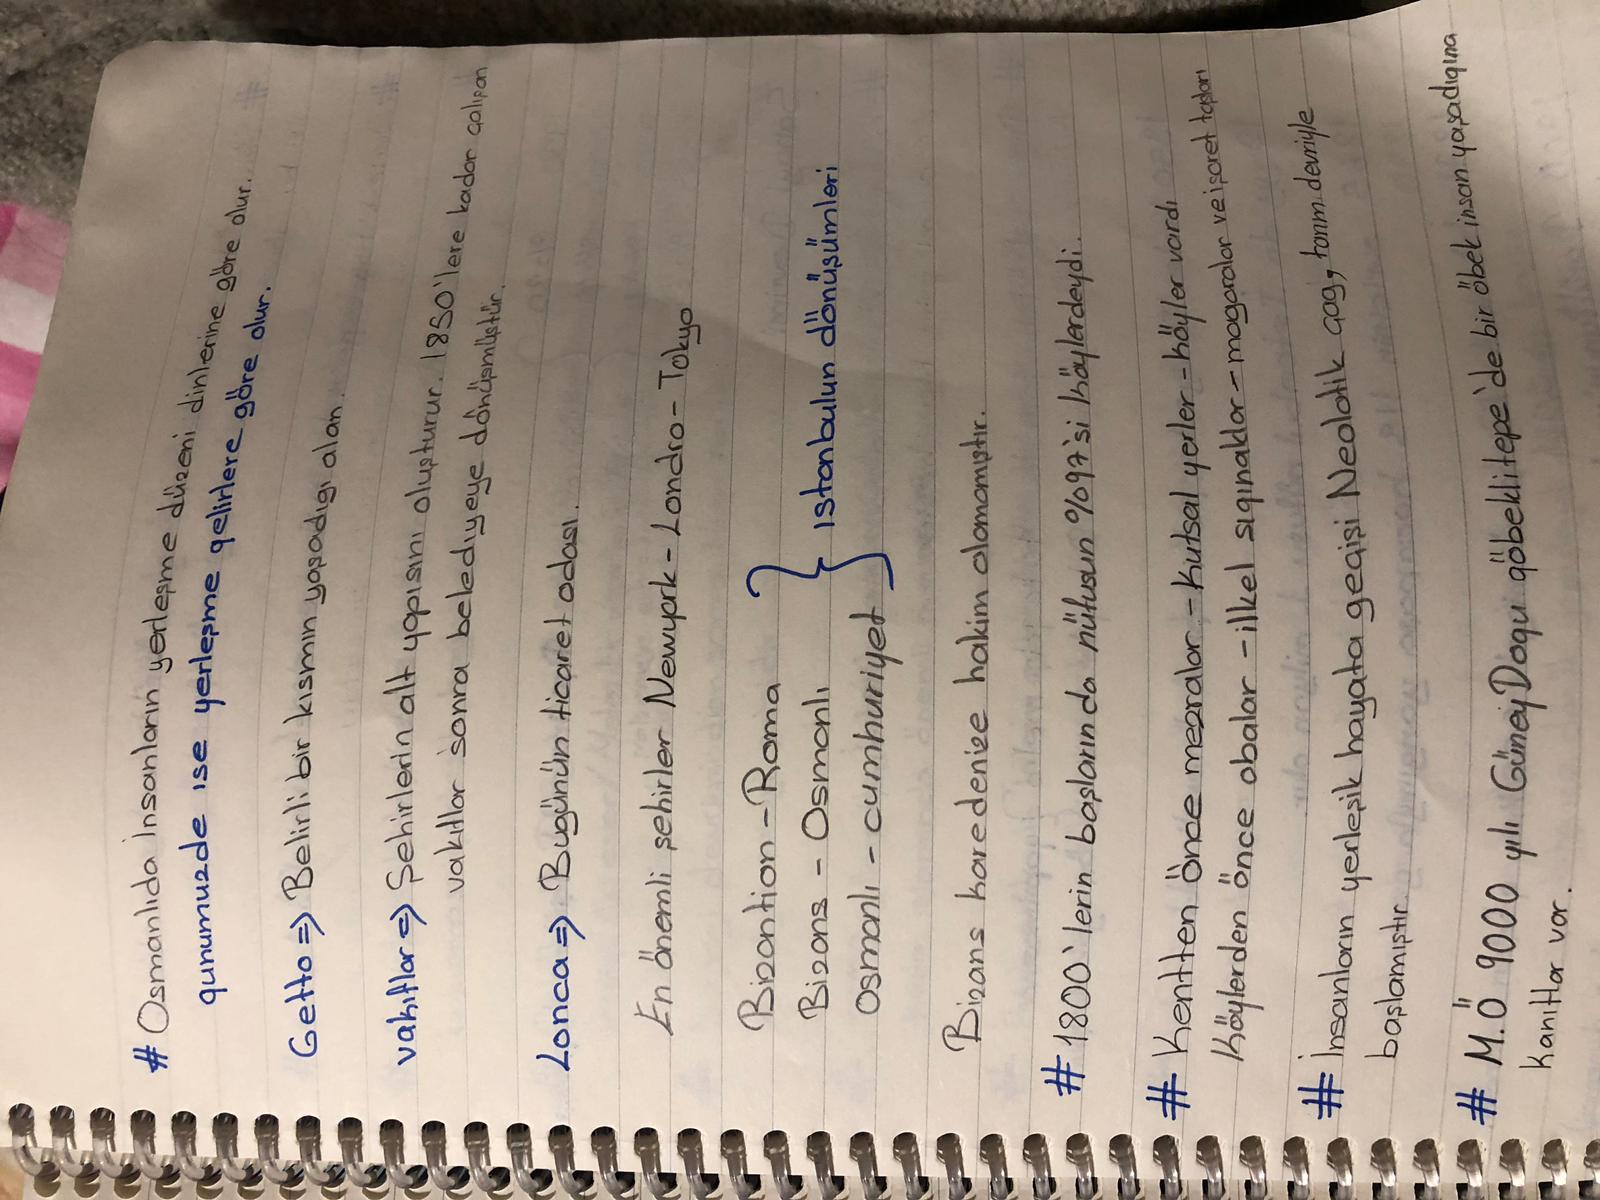 # Osmanlıda İnsanların yerleşme düzeni dinlerine göre olur.
qunumuzde ise yerleşme qelirlere göre olur.
Getto => Belirli bir kısmın yaşadıgı alan.
Vakıflar => Şehirlerin alt yapısını oluşturur. 1850'lere kadar çalışan
vakıflar sonra belediyeye dönüşmüştür.
Lonca => Bugünün ticaret odası.
En önemli şehirler Newyork - Londra - Tokyo
Bizantion - Roma
Bizans - Osmanlı
Osmanlı - cumhuriyet
ıstanbulun dönüşümleri
Bizans karedenize hakim olamamıştır.
# 1800'lerin başlarında nüfusun %97'si köylerdeydi.
# Kentten önce mezralar - kutsal yerler - köyler vardı
Köylerden önce obalar - ilkel sıqınaklar - magaralar ve işaret taşları
# İnsanların yerleşik hayata geçişi Neolotik çag, tarım devriyle
başlamıştır.
# M.Ö 9000 yılı Güney Dogu göbeklitepe'de bir öbek insan yaşadıgına
kanıtlar var.